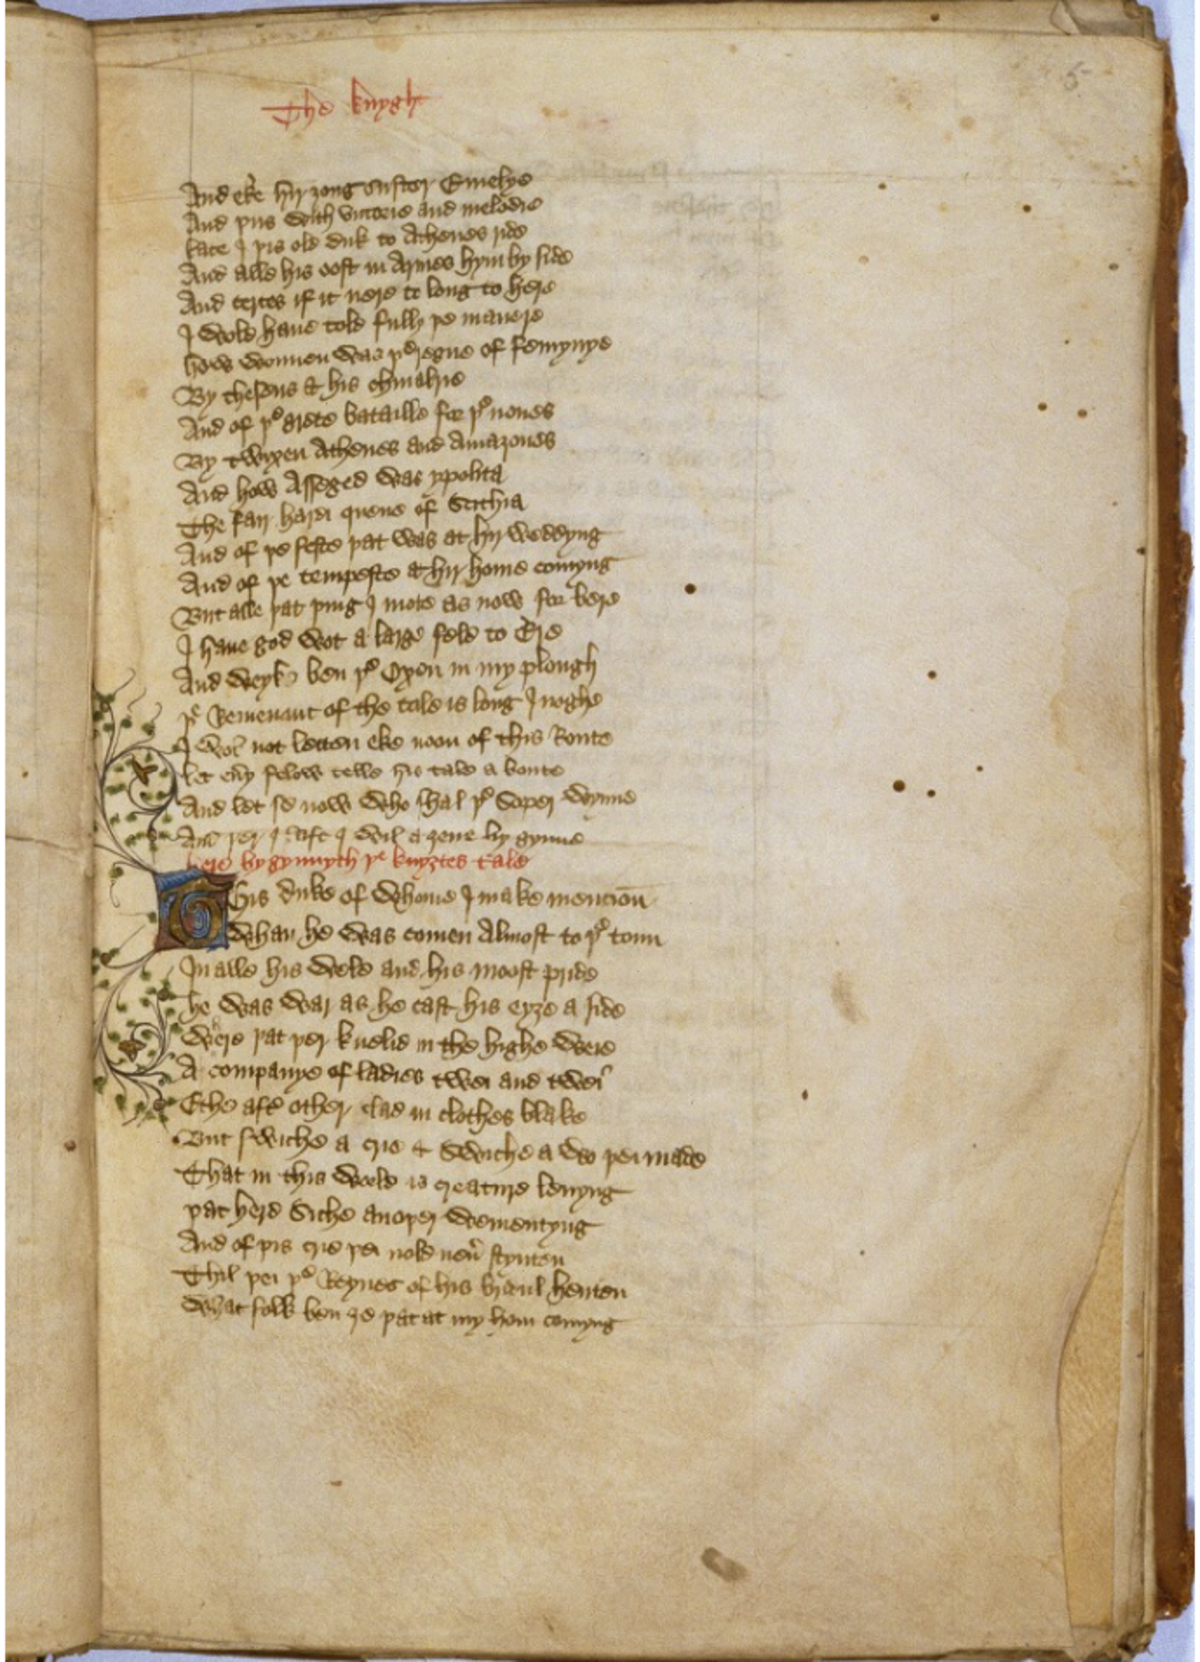 The knygh
5
And eke hir zong suster Emelye
And þus with victorie and melodie
late I þis old duk to Athenes ride
And alle his oost in Armes hym by side
And certes if it nere to long to here
I wold haue told fully þe manere
how wonnen was þe regne of femynye
By theseus & his chiualrie
And of þe grete bataille for þe nones
By twyxen Athenes and Amazones
And how Asseged was ypolita
The fair hardi quene of Scithia
And of þe feste þat was at hir weddyng
And of þe tempeste at hir home comyng
But alle þat þing I mote as now for bere
I haue god wot a large feld to Ere
And weyk ben þe Oxen in my plough
þe Remenaunt of the tale is long Inoghe
I wol not letten eke noon of this Route
let euy felow telle his tale a boute
And let se now who shal þe Soper wynne
And þer I left I wil a zene by gynne
here bygynnyth þe knyztes tale
This duke of whome I make mencion
Whan he was comen Almost to þe toun
In alle his wele and his moost pride
he was war as he cast his eyze a side
Were þat þer knelid in the highe weie
A companye of ladies twei and twei
Eche aft other clad in clothes blake
But swiche a crie & Swiche a wo þei made
That in this world is creature leuyng
þat herd Siche anoþer wementyng
And of þis crie þei nold neu stynten
Thil þei þe Reynes of his bridul henten
What folk ben ze þat at my hom comyng